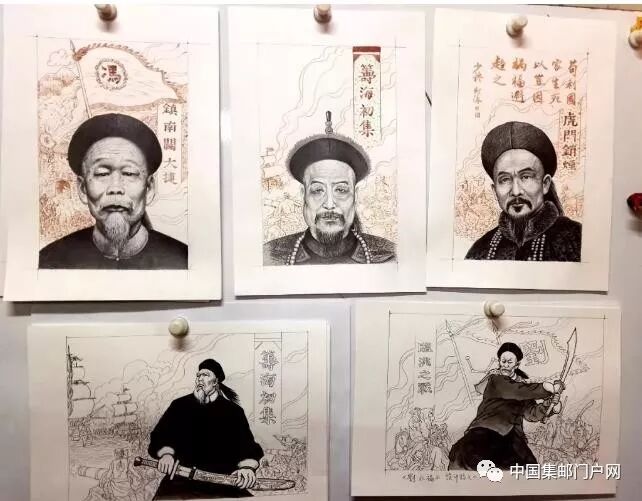 馮
鎮南關大捷
籌海初集
苟利國
家生死
以豈因
禍福避
趨之
少穆
虎門銷煙
籌海初集
之戰
劉
《劉永福》
中国集邮门户网